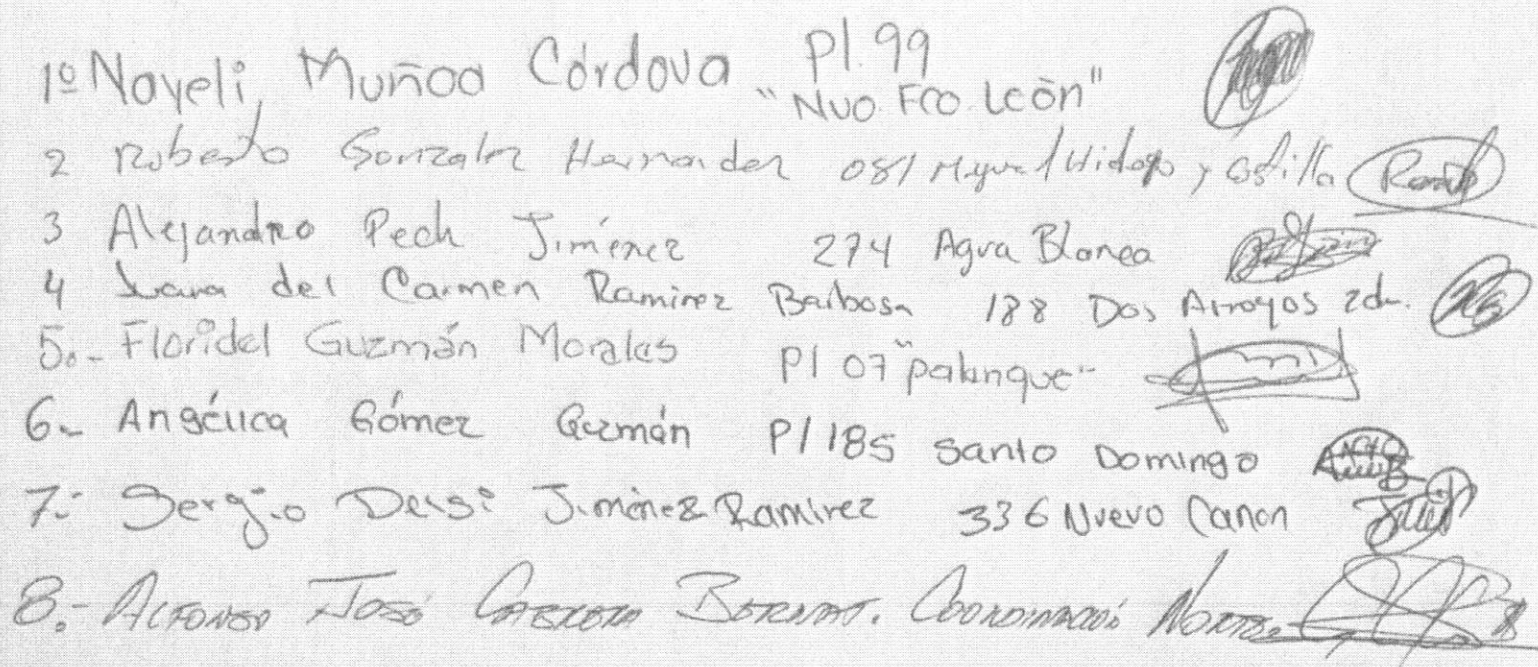 1º Nayeli Muñoa Córdova Pl. 99 "Nvo. Fco. León"
2 Roberto Gonzalez Hernandez 081 Miguel Hidalgo y Costilla
3 Alejandro Pech Jiménez 274 Agua Blanca
4 Juana del Carmen Ramirez Barbosa 188 Dos Arroyos 2da.
5.- Floridel Guzmán Morales Pl 07 "palenque"
6.- Angélica Gómez Guzmán Pl 185 Santo Domingo
7.- Sergio Deisi Jiménez Ramirez 336 Nuevo Canan
8.- Alfonso José Cabrera Bernat. Coordinación Norte.